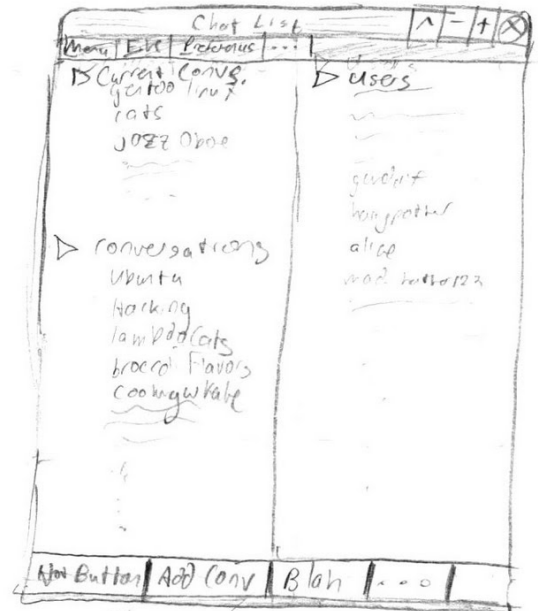 Chat List
^ - +
Menu | Edit | Preferences | ... |
Current Convs.
gentoo linux
cats
jazz Oboe
conversations
Ubuntu
Hacking
lambdacats
broccoli Flavors
cookingwkate
Users
harrypotter
alice
mad hatter123
Button | Add Conv | Blah | ... |